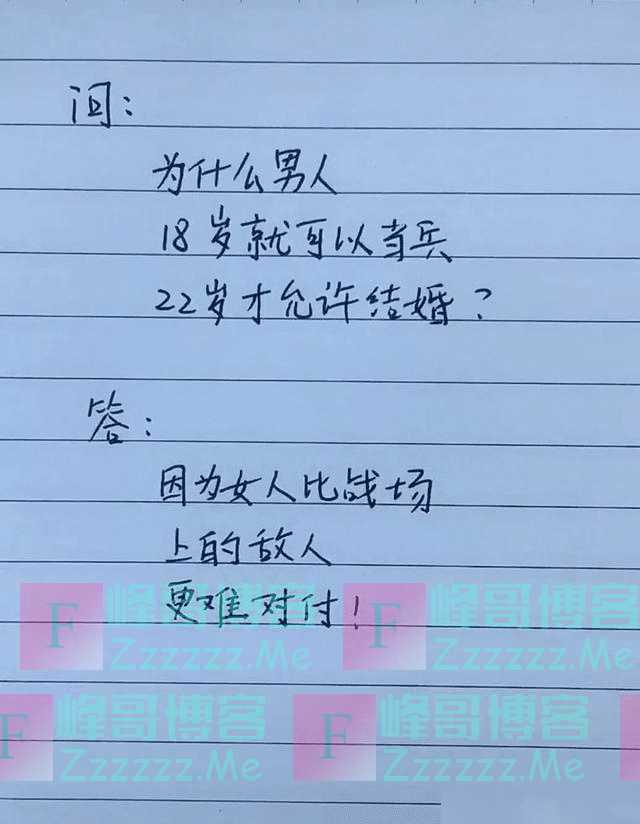 问：
为什么男人
18岁就可以当兵
22岁才允许结婚？
答：
因为女人比战场
上的敌人
更难对付！
F 峰哥博客 F 峰哥博客
Zzzzzz.Me Zzzzzz.Me
F 峰哥博客 F 峰哥博客
Zzzzzz.Me Zzzzzz.Me